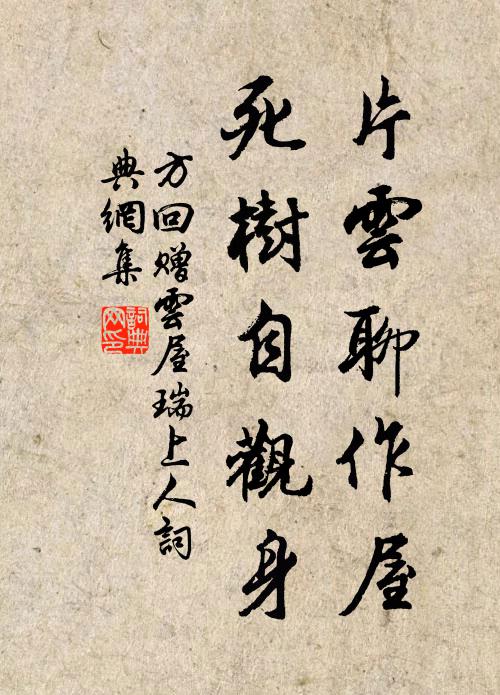 片雲聊作屋
死樹自觀身
方回赠雲屋瑞上人詞
典網集
詞典
网印